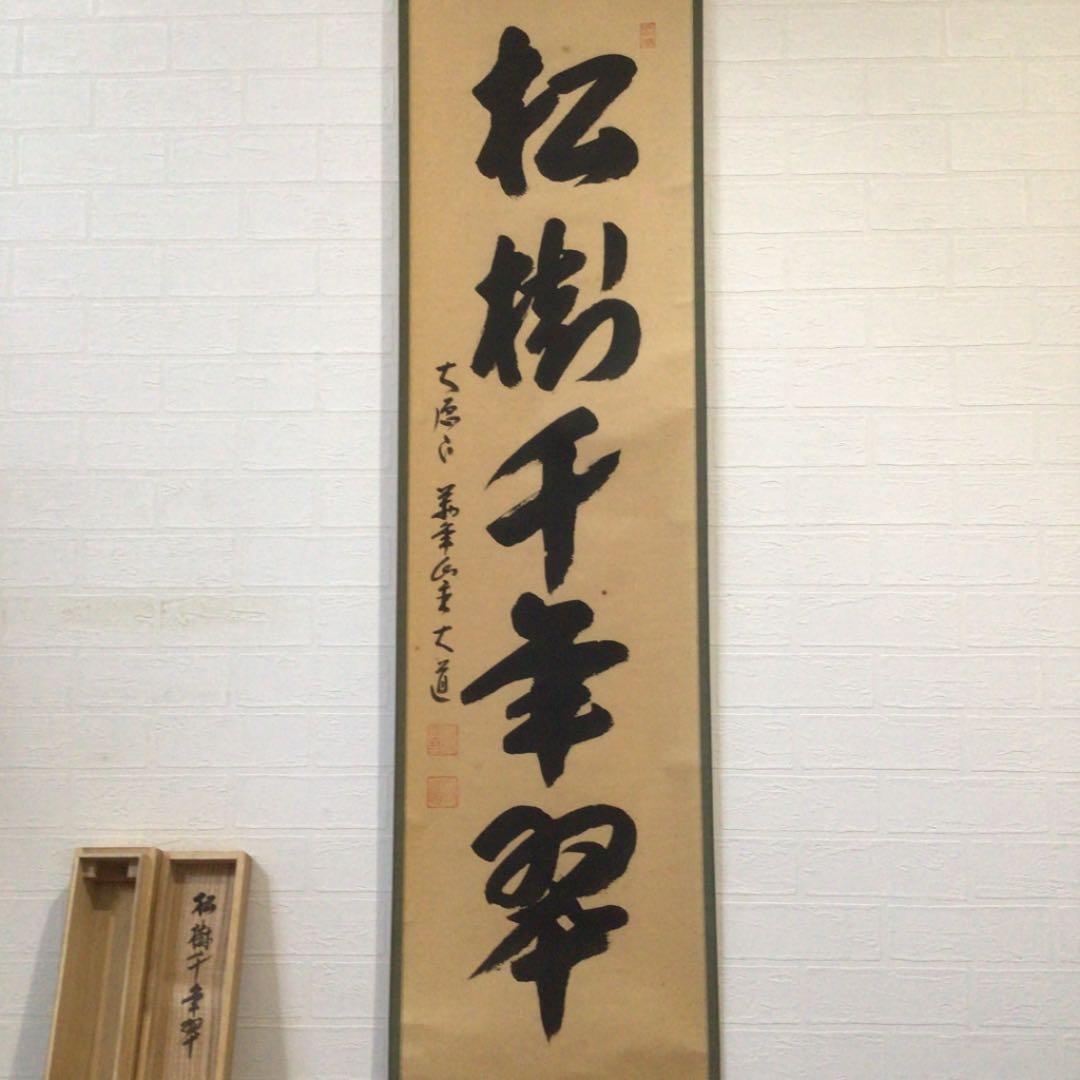 松樹千年翠
大源下 萬年山主大道
松樹千年翠